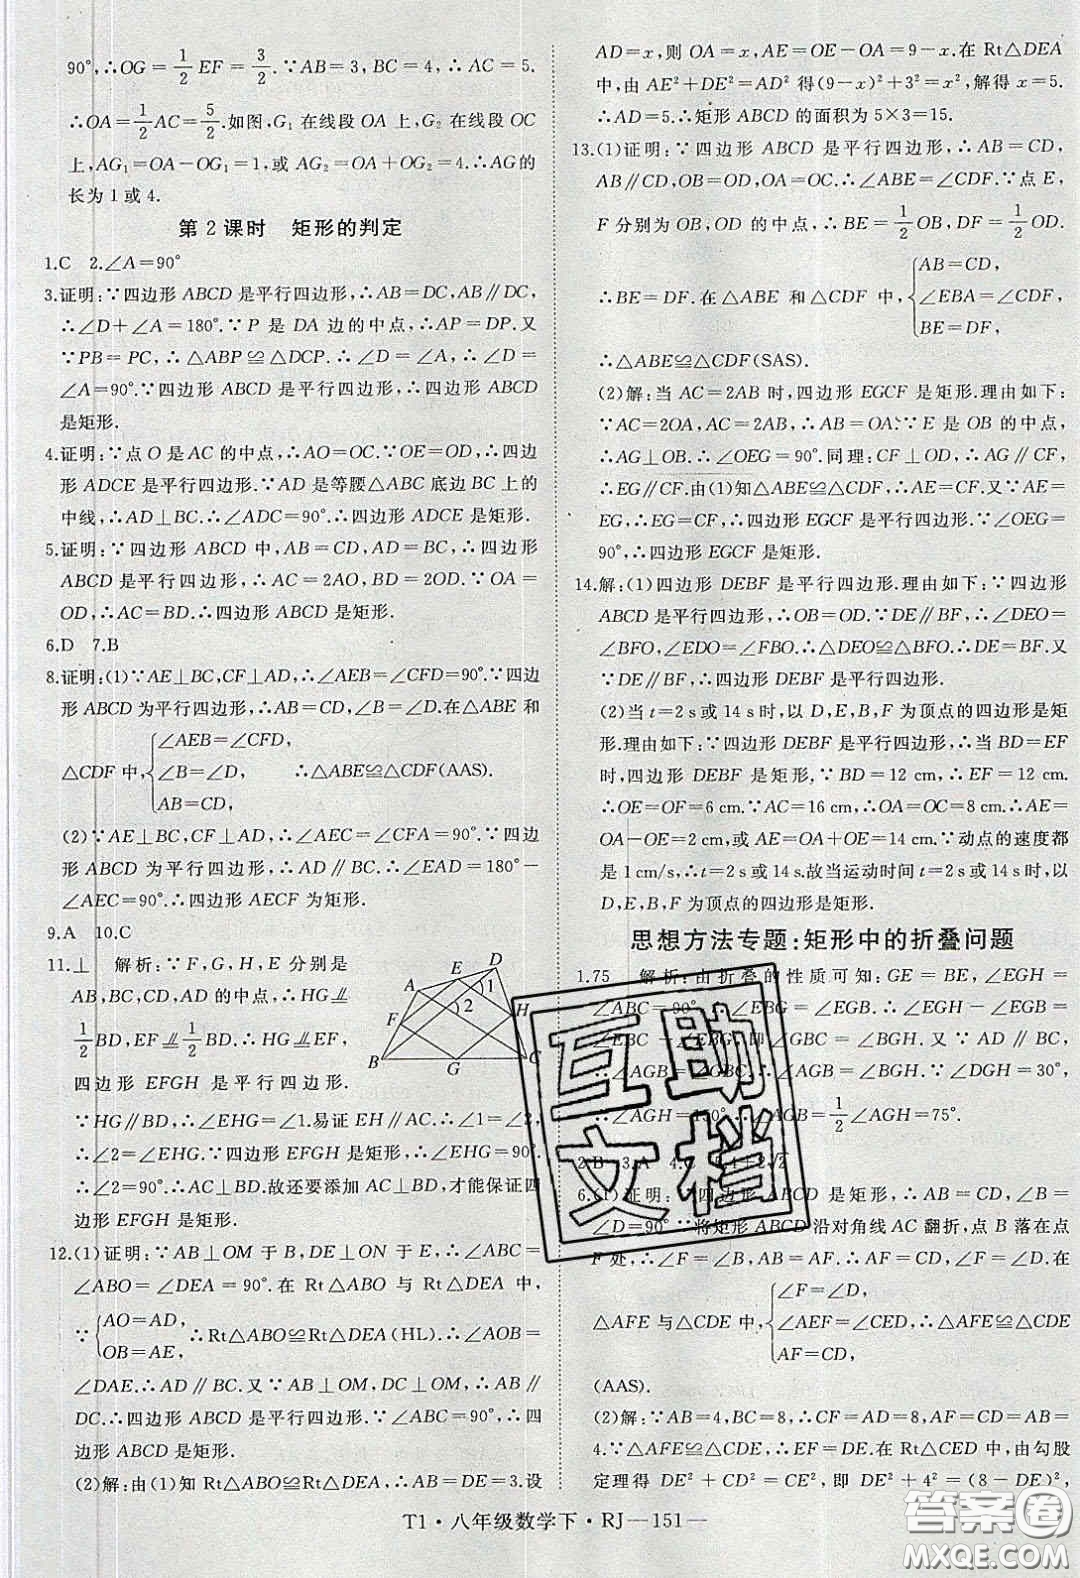 90°,∴OG=1/2EF=3/2.∵AB=3,BC=4,∴AC=5.
∴OA=1/2AC=5/2.如图,G₁在线段OA上,G₂在线段OC
上,AG₁=OA-OG₁=1,或AG₂=OA+OG₂=4.∴AG的
长为1或4.
第2课时 矩形的判定
1.C 2.∠A=90°
3.证明:∵四边形ABCD是平行四边形,∴AB=DC,AB∥DC,
∴∠D+∠A=180°.∵P是DA边的中点,∴AP=DP.又
∵PB=PC,∴△ABP≌△DCP.∴∠D=∠A,∴∠D=
∠A=90°.∵四边形ABCD是平行四边形,∴四边形ABCD
是矩形.
4.证明:∵点O是AC的中点,∴AO=OC.∵OE=OD,∴四边
形ADCE是平行四边形.∵AD是等腰△ABC底边BC上的
中线,∴AD⊥BC.∴∠ADC=90°.∴四边形ADCE是矩形.
5.证明:∵四边形ABCD中,AB=CD,AD=BC,∴四边形
ABCD是平行四边形,∴AC=2AO,BD=2OD.∵OA=
OD,∴AC=BD.∴四边形ABCD是矩形.
6.D 7.B
8.证明:(1)∵AE⊥BC,CF⊥AD,∴∠AEB=∠CFD=90°.∵四边
形ABCD为平行四边形,∴AB=CD,∠B=∠D.在△ABE和
△CDF中,{∠AEB=∠CFD,
∠B=∠D,
AB=CD,
∴△ABE≌△CDF(AAS).
(2)∵AE⊥BC,CF⊥AD,∴∠AEC=∠CFA=90°.∵四边
形ABCD为平行四边形,∴AD∥BC.∴∠EAD=180°-
∠AEC=90°.∴四边形AECF为矩形.
9.A 10.C
11.⊥ 解析:∵F,G,H,E分别是
AB,BC,CD,AD的中点,∴HG∥=
1/2BD,EF∥=1/2BD.∴HG∥=EF,∴
四边形EFGH是平行四边形.
A E D 1 2 F H B G C
∵HG∥BD,∴∠EHG=∠1.易证EH∥AC,∴∠1=∠2,
∴∠2=∠EHG.∵四边形EFGH是矩形,∴∠EHG=90°,
∴∠2=90°.∴AC⊥BD.故还要添加AC⊥BD,才能保证四
边形EFGH是矩形.
12.(1)证明:∵AB⊥OM于B,DE⊥ON于E,∴∠ABC=
∠ABO=∠DEA=90°.在Rt△ABO与Rt△DEA中,
∵{AO=AD,
OB=AE,
∴Rt△ABO≌Rt△DEA(HL).∴∠AOB=
∠DAE.∴AD∥BC.又∵AB⊥OM,DC⊥OM,∴AB∥
DC.∴四边形ABCD是平行四边形.∵∠ABC=90°,∴四
边形ABCD是矩形.
(2)解:由(1)知Rt△ABO≌Rt△DEA,∴AB=DE=3.设
AD=x,则OA=x,AE=OE-OA=9-x.在Rt△DEA
中,由AE²+DE²=AD²得(9-x)²+3²=x²,解得x=5.
∴AD=5.∴矩形ABCD的面积为5×3=15.
13.(1)证明:∵四边形ABCD是平行四边形,∴AB=CD,
AB∥CD,OB=OD.∴∠ABE=∠CDF.∵点E,
F分别为OB,OD的中点,∴BE=1/2OB,DF=1/2OD.
∴BE=DF.在△ABE和△CDF中,{AB=CD,
∠EBA=∠CDF,
BE=DF,
∴△ABE≌△CDF(SAS).
(2)解:当AC=2AB时,四边形EGCF是矩形.理由如下:
∵AC=2OA,AC=2AB,∴AB=OA.∵E是OB的中点,
∴AG⊥OB.∴∠OEG=90°.同理:CF⊥OD,∴AG∥CF,
∴EG∥CF.由(1)知△ABE≌△CDF,∴AE=CF.又∵AE=
EG,∴EG=CF,∴四边形EGCF是平行四边形.∵∠OEG=
90°,∴四边形EGCF是矩形.
14.解:(1)四边形DEBF是平行四边形.理由如下:∵四边形
ABCD是平行四边形,∴OB=OD.∵DE∥BF,∴∠DEO=
∠BFO,∠EDO=∠FBO.∴△DEO≌△BFO.∴DE=BF.又
∵DE∥BF,∴四边形DEBF是平行四边形.
(2)当t=2s或14s时,以D,E,B,F为顶点的四边形是矩
形.理由如下:∵四边形DEBF是平行四边形,∴当BD=EF
时,四边形DEBF是矩形.∵BD=12cm,∴EF=12cm.
∴OE=OF=6cm.∵AC=16cm,∴OA=OC=8cm.∴AE=
OA-OE=2cm,或AE=OA+OE=14cm.∵动点的速度都
是1cm/s,∴t=2s或14s.故当运动时间t=2s或14s时,以
D,E,B,F为顶点的四边形是矩形.
思想方法专题:矩形中的折叠问题
1.75 解析:由折叠的性质可知:GE=BE,∠EGH=
∠ABC=90°,∴∠EBG=∠EGB.∴∠EGH-∠EGB=
∠EBC-∠EBG.即∠GBC=∠BGH.又∵AD∥BC,
∴∠AGB=∠GBC.∴∠AGB=∠BGH.∵∠DGH=30°,
∴∠AGH=150°.∴∠AGB=1/2∠AGH=75°.
2.B 3.A 4.C
6.(1)证明:∵四边形ABCD是矩形,∴AB=CD,∠B=
∠D=90°.∵将矩形ABCD沿对角线AC翻折,点B落在点
F处,∴∠F=∠B,AB=AF.∴AF=CD,∠F=∠D.在
△AFE与△CDE中,{∠F=∠D,
∠AEF=∠CED,
AF=CD,
∴△AFE≌△CDE
(AAS).
(2)解:∵AB=4,BC=8,∴CF=AD=8,AF=CD=AB=
4.∵△AFE≌△CDE,∴EF=DE.在Rt△CED中,由勾股
定理得DE²+CD²=CE²,即DE²+4²=(8-DE)²,
T1·八年级数学下·RJ—151—
互助
文档
答案圈
MXQE.COM